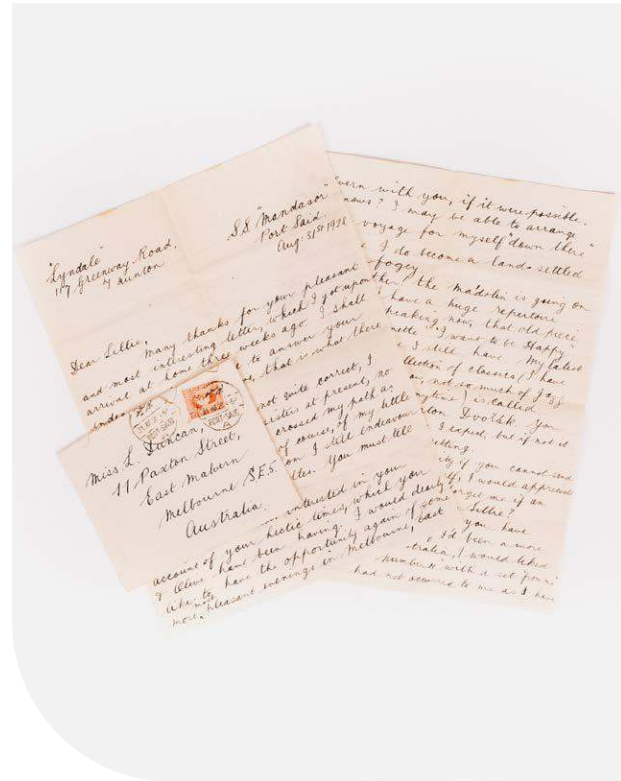 "Lyndale"
117 Greenway Road,
Taunton
S.S. "Mandasor"
Port Said.
Aug. 31st
Dear Lillie,
Many thanks for your pleasant
and most interesting letter, which I got upon
arrival at home three weeks ago. I shall
to answer your
that is what there
not quite correct, I
sisters at present, no
crossed my path as
of course, if my little
on I still endeavour
You must tell
interested in your
account of your hectic times, which you
& Olive have been having. I would dearly
like to have the opportunity again of some
more pleasant evenings in Melbourne, East
Miss. L. Duncan,
11 Paxton Street,
East Malvern
Melbourne S.E.5.
Australia.
with you, if it were possible.
knows? I may be able to arrange
voyage for myself "down there"
I do become a lands settled
fogey
the is going on
have a huge repertoire
speaking now, that old piece
I want to be Happy
I still have. My latest
collection of classics (I have
not so much of Jazz
is called
Dvorák you
I expect, but if not it
getting.
if you cannot send
I would appreciate
forget me if an
Lillie?
you have
been a more
I would liked
number with a set
had not occurred to me as I have